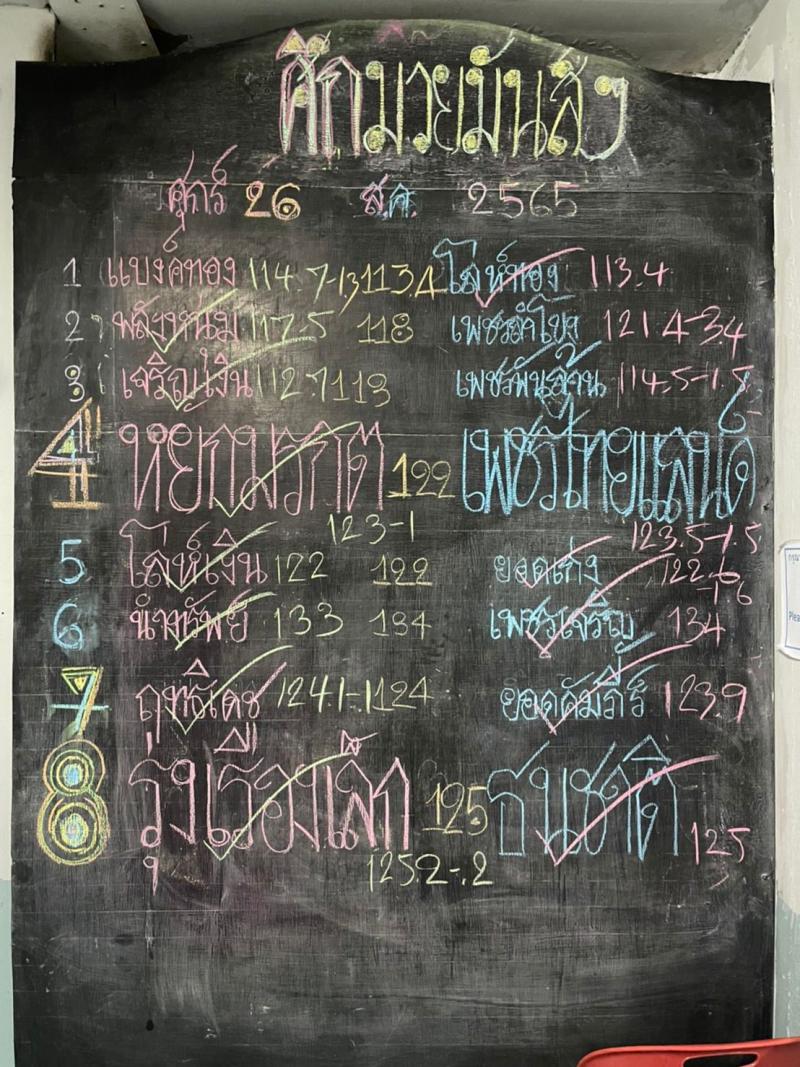 ศึกมวยมันส์ๆ
ศุกร์ 26 ส.ค. 2565
1 แบงค์ทอง 114.7-.13 113.4 โลห์ทอง 113.4
2 พลังหนุ่ม 117.5 118 เพชรลำโขง 121.4-3.4
3 เจริญเงิน 112.7 113 เพชรพันล้าน 114.5-1.5
4 หยกมรกต 122 เพชรไทยแลนด์
123-1 123.5-1.5
5 โลห์เงิน 122 122 ยอดเก่ง 122.6
-.6
6 นำทรัพย์ 133 134 เพชรเจริญ 134
7 ฤทธิเดช 124.1-.1 124 ยอดคัมภีร์ 123.9
8 รุ่งเรืองเล็ก 125 ธนชาติ 125
125.2-.2